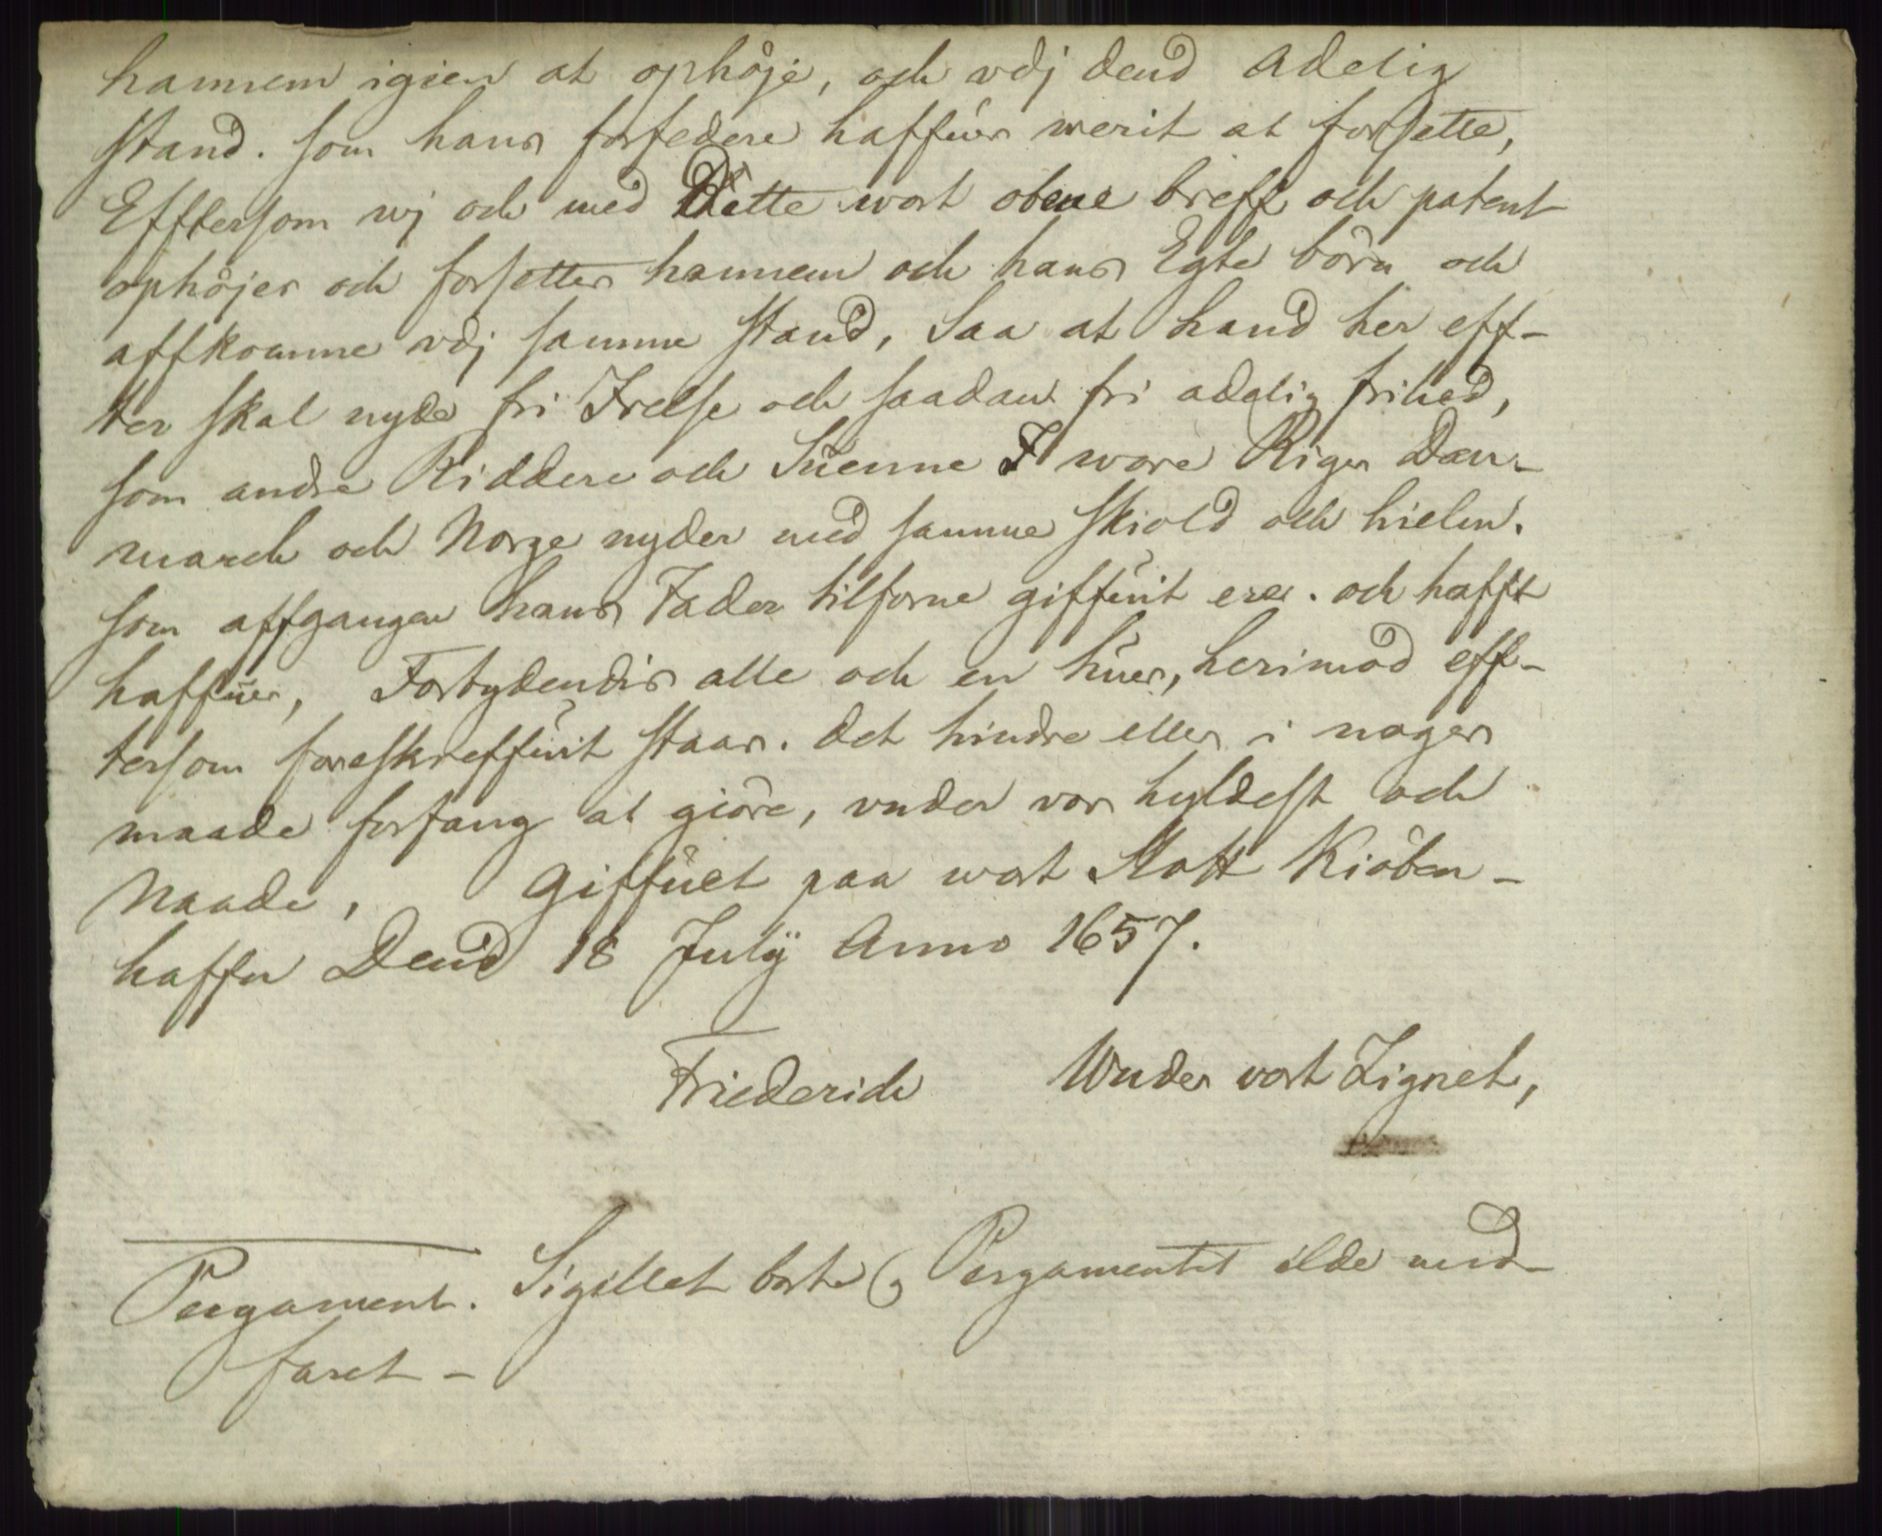 hannem igien at ophøje, och vdj dend Adelig
stand. som hans forfedere haffuer werit at forsette,
Efftersom wj och med Dette wort obene breff och patent
ophøjer och forsetter hannem och hans Egte börn och
affkomme vdj samme stand, Saa at hand her eff-
ter skal nyde fri Frelse och saadan fri adelig frihed,
som andre Riddere och Suenne I wore Riger Dan-
march och Norge nyder med samme skiold och hielm.
som affgangen hans Fader tilforne giffuit er. och hafft
haffuer, Forbydendis alle och en huer, herimod eff-
tersom foreskreffuit staar. det hindre eller i noger
maade forfang at giöre, vnder vor hyldest och
Naade, Giffuet paa wort Slott Kiöben-
haffn Dend 18 Julÿ Anno 1657.
Friederich Wnder vort Zignet,
Pergament. Sigillet borte og Pergamentet ilde med-
faret -